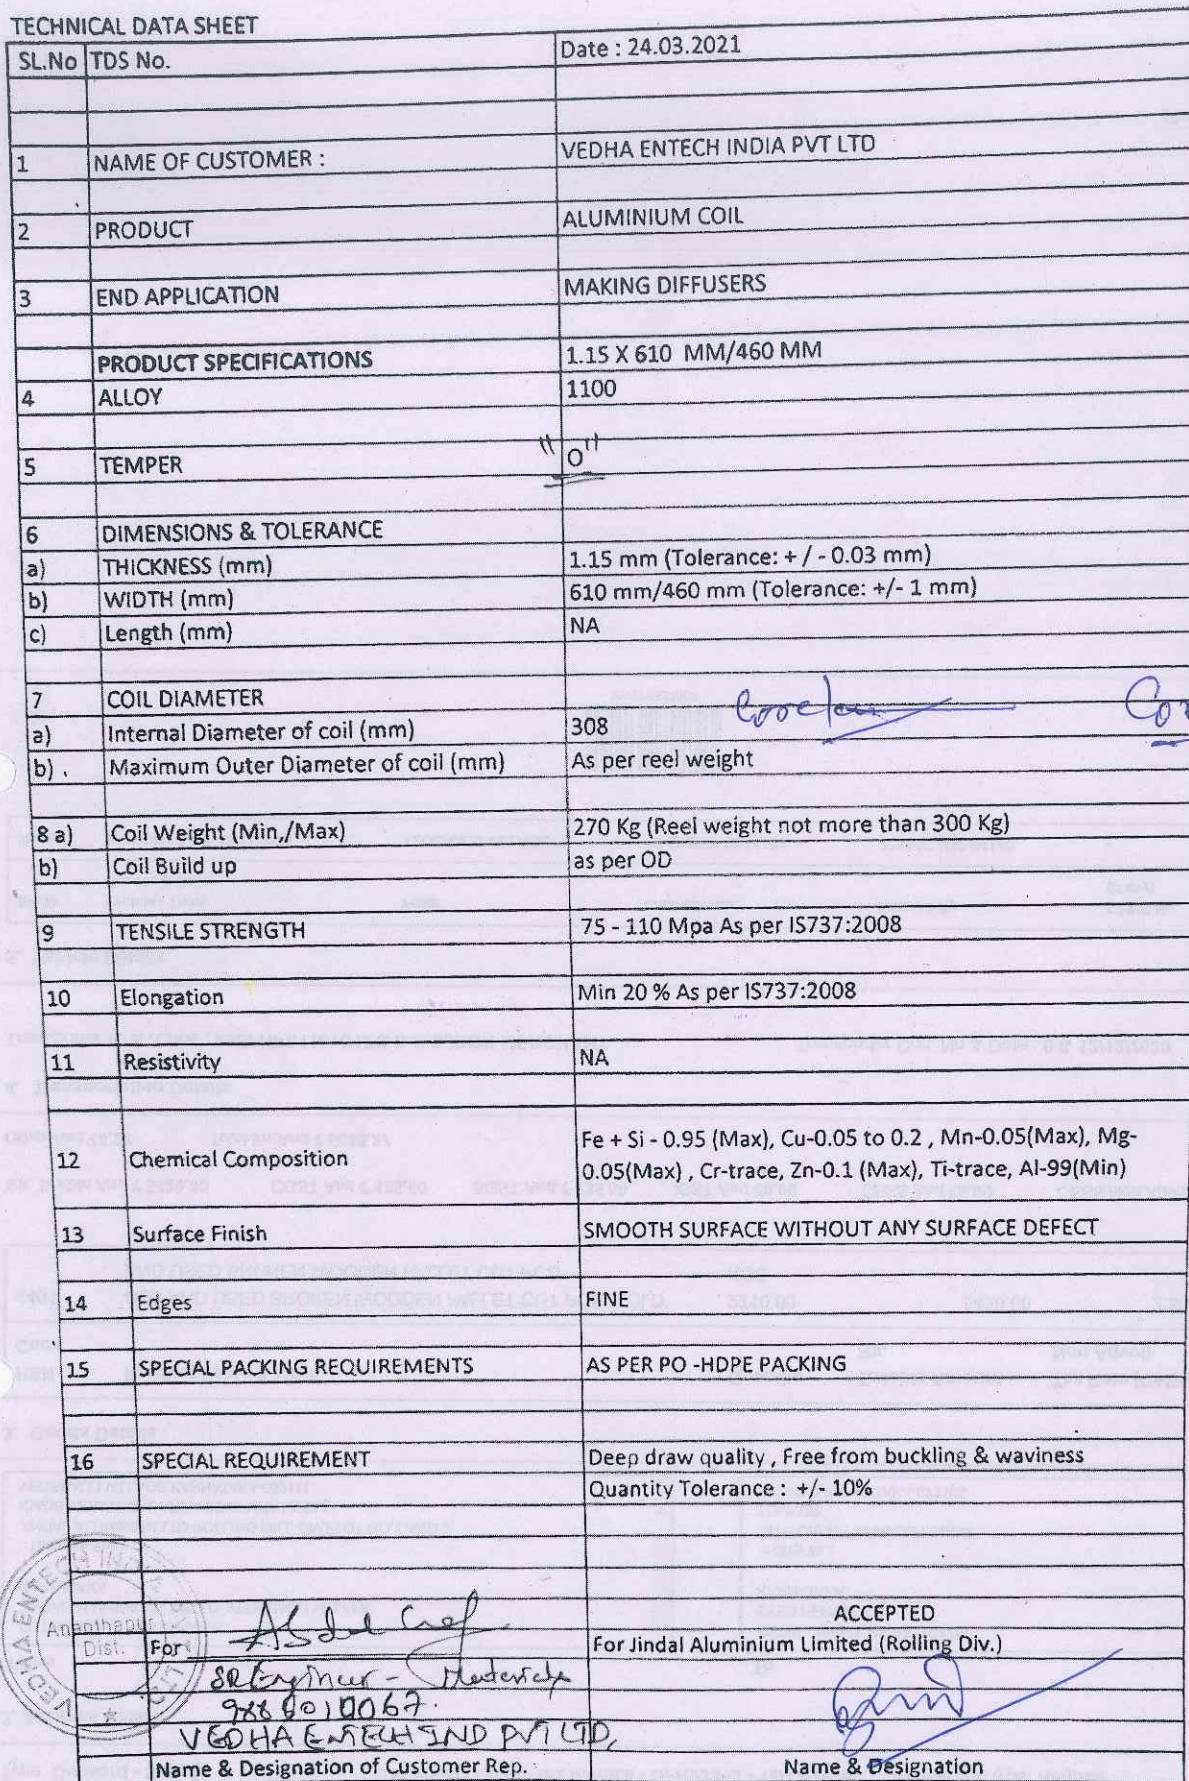 TECHNICAL DATA SHEET
SL.No TDS No. Date : 24.03.2021
1 NAME OF CUSTOMER : VEDHA ENTECH INDIA PVT LTD
2 PRODUCT ALUMINIUM COIL
3 END APPLICATION MAKING DIFFUSERS
PRODUCT SPECIFICATIONS 1.15 X 610 MM/460 MM
4 ALLOY 1100
5 TEMPER "O"
6 DIMENSIONS & TOLERANCE
a) THICKNESS (mm) 1.15 mm (Tolerance: + / - 0.03 mm)
b) WIDTH (mm) 610 mm/460 mm (Tolerance: +/- 1 mm)
c) Length (mm) NA
7 COIL DIAMETER
a) Internal Diameter of coil (mm) 308
b) . Maximum Outer Diameter of coil (mm) As per reel weight
8 a) Coil Weight (Min,/Max) 270 Kg (Reel weight not more than 300 Kg)
b) Coil Build up as per OD
9 TENSILE STRENGTH 75 - 110 Mpa As per IS737:2008
10 Elongation Min 20 % As per IS737:2008
11 Resistivity NA
12 Chemical Composition Fe + Si - 0.95 (Max), Cu-0.05 to 0.2 , Mn-0.05(Max), Mg-
0.05(Max) , Cr-trace, Zn-0.1 (Max), Ti-trace, Al-99(Min)
13 Surface Finish SMOOTH SURFACE WITHOUT ANY SURFACE DEFECT
14 Edges FINE
15 SPECIAL PACKING REQUIREMENTS AS PER PO -HDPE PACKING
16 SPECIAL REQUIREMENT Deep draw quality , Free from buckling & waviness
Quantity Tolerance : +/- 10%
VEDHA ENTECH INDIA
Ananthapur
Dist.
ACCEPTED
For
For Jindal Aluminium Limited (Rolling Div.)
SR Engineer -
VEDHA ENTECH IND PVT LTD,
Name & Designation of Customer Rep. Name & Designation